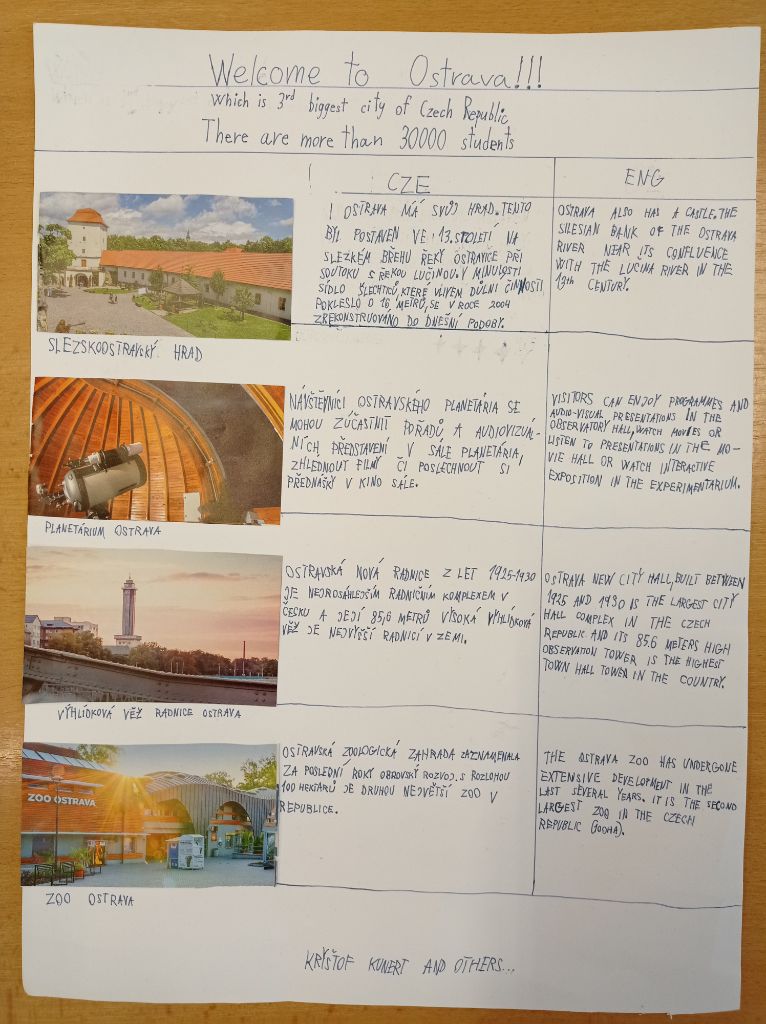 Welcome to Ostrava!!!
Which is 3rd biggest city of Czech Republic
There are more than 30000 students
CZE
ENG
! OSTRAVA MÁ SVŮJ HRAD. TENTO
BYL POSTAVEN VE 13. STOLETÍ NA
SLEZKÉM BŘEHU ŘEKY OSTRAVICE PŘI
SOUTOKU S ŘEKOU LUČINOU. V MINULOSTI
SÍDLO ŠLECHTICŮ, KTERÉ VLIVEM DŮLNÍ ČINNOSTI
POKLESLO O 16 METRŮ, SE V ROCE 2004
ZREKONSTRUOVÁNO DO DNEŠNÍ PODOBY.
OSTRAVA ALSO HAS A CASTLE. THE
SILESIAN BANK OF THE OSTRAVA
RIVER NEAR ITS CONFLUENCE
WITH THE LUCINA RIVER IN THE
13th CENTURY.
SLEZSKOOSTRAVSKÝ HRAD
NÁVŠTĚVNÍCI OSTRAVSKÉHO PLANETÁRIA SE
MOHOU ZÚČASTNIT POŘADŮ A AUDIOVIZUÁL-
NÍCH PŘEDSTAVENÍ V SÁLE PLANETÁRIA,
ZHLÉDNOUT FILMY ČI POSLECHNOUT SI
PŘEDNÁŠKY V KINO SÁLE.
VISITORS CAN ENJOY PROGRAMMES AND
AUDIO-VISUAL PRESENTATIONS IN THE
OBSERVATORY HALL, WATCH MOVIES OR
LISTEN TO PRESENTATIONS IN THE MO-
VIE HALL OR WATCH INTERACTIVE
EXPOSITION IN THE EXPERIMENTARIUM.
PLANETÁRIUM OSTRAVA
OSTRAVSKÁ NOVÁ RADNICE Z LET 1925-1930
JE NEJROSÁHLEJŠÍM RADNIČNÍM KOMPLEXEM V
ČESKU A JEJÍ 85,6 METRŮ VYSOKÁ VYHLÍDKOVÁ
VĚŽ JE NEJVYŠŠÍ RADNICÍ V ZEMI.
OSTRAVA NEW CITY HALL, BUILT BETWEEN
1925 AND 1930 IS THE LARGEST CITY
HALL COMPLEX IN THE CZECH
REPUBLIC AND ITS 85.6 METERS HIGH
OBSERVATION TOWER IS THE HIGHEST
TOWN HALL TOWER IN THE COUNTRY.
VÝHLÍDKOVÁ VĚŽ RADNICE OSTRAVA
ZOO OSTRAVA
OSTRAVSKÁ ZOOLOGICKÁ ZAHRADA ZAZNAMENALA
ZA POSLEDNÍ ROKY OBROVSKÝ ROZVOJ. S ROZLOHOU
100 HEKTARŮ JE DRUHOU NEJVĚTŠÍ ZOO V
REPUBLICE.
THE OSTRAVA ZOO HAS UNDERGONE
EXTENSIVE DEVELOPMENT IN THE
LAST SEVERAL YEARS. IT IS THE SECOND
LARGEST ZOO IN THE CZECH
REPUBLIC (100ha).
ZOO OSTRAVA
KRYŠTOF KUNERT AND OTHERS...